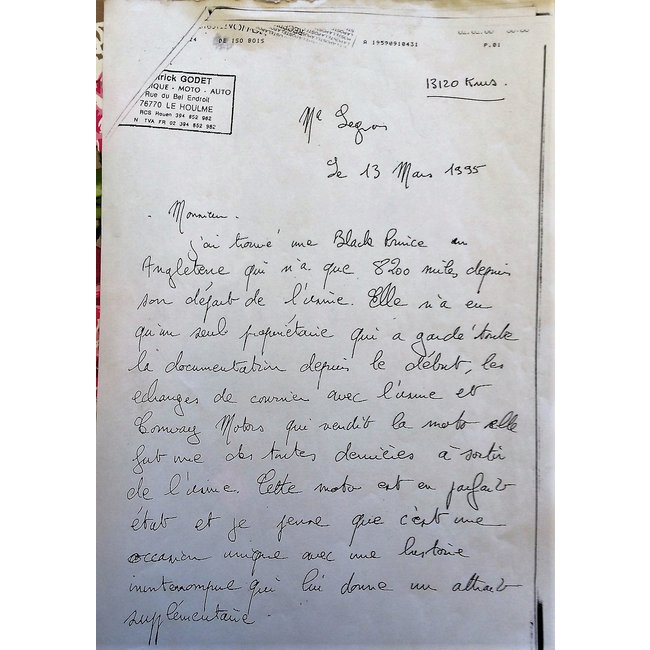 DE ISO BOIS
A 19590910431
P.01
trick GODET
IQUE - MOTO - AUTO
Rue du Bel Endroit
76770 LE HOULME
RCS Rouen 394 852 982
N TVA FR 02 394 852 982
13120 Kms.
Me Legros
Le 13 Mars 1995
Monsieur.
j'ai trouvé une Black Prince en
Angleterre qui n'a que 8200 miles depuis
son départ de l'usine. Elle n'a eu
qu'un seul propriétaire qui a gardé toute
la documentation depuis le début, les
echanges de courrier avec l'usine et
Conway Motors qui vendit la moto elle
fut une des toutes dernières à sortir
de l'usine. Cette moto est en parfait
état et je pense que c'est une
occasion unique avec une histoire
ininterrompue qui lui donne un attrait
supplémentaire.